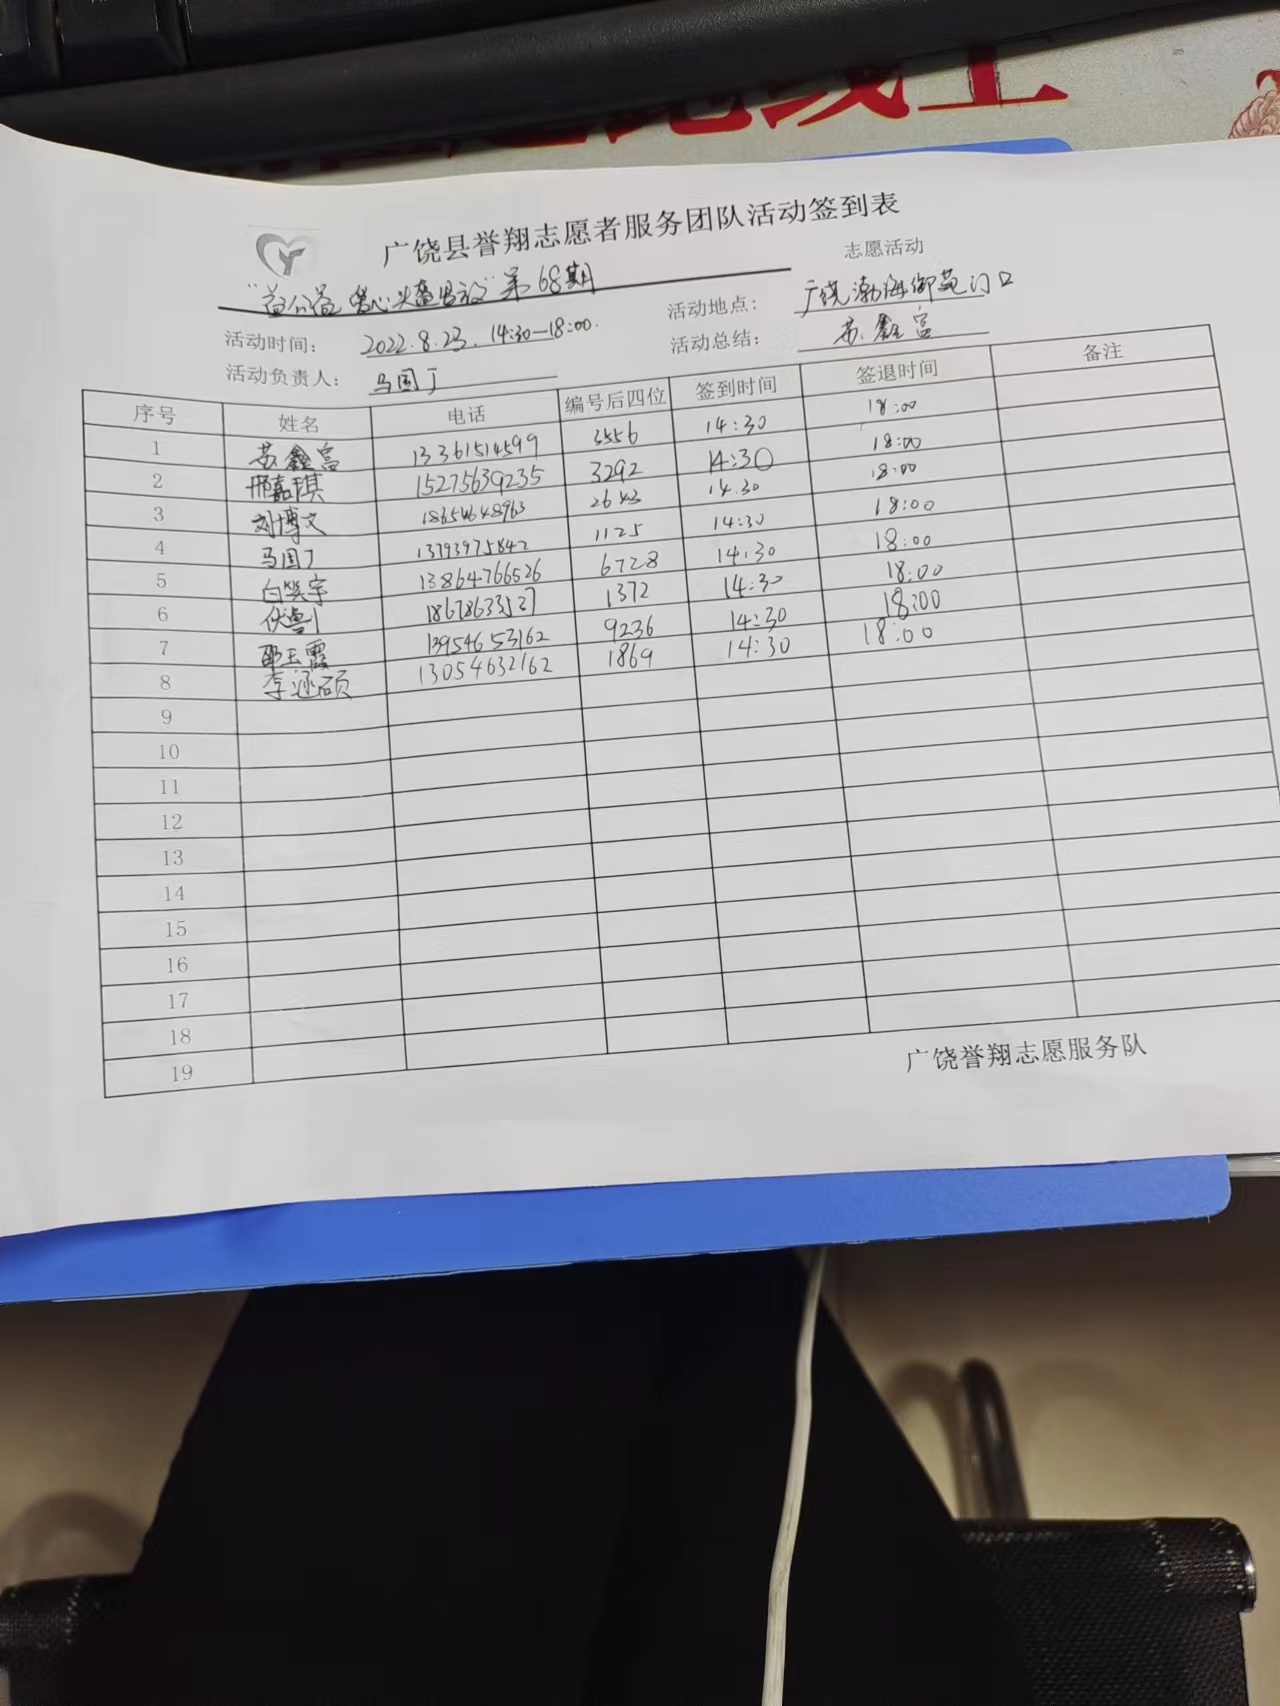 广饶县誉翔志愿者服务团队活动签到表
"益公益 爱心头盔发放"第68期 志愿活动
活动时间： 2022.8.23. 14:30—18:00. 活动地点： 广饶渤海御苑门口
活动负责人： 马国丁 活动总结： 苏鑫富
序号 姓名 电话 编号后四位 签到时间 签退时间 备注
1 苏鑫富 13361514599 3556 14:30 18:00
2 邢嘉琪 15275639235 3292 14:30 18:00
3 刘博文 18654648963 2643 14:30 18:00
4 马国丁 13793975842 1125 14:30 18:00
5 白笑宇 13864766526 6728 14:30 18:00
6 18678633527 1372 14:30 18:00
7 邵玉霞 13954653162 9236 14:30 18:00
8 李涵硕 13054632162 1869 14:30 18:00
9
10
11
12
13
14
15
16
17
18
19
广饶誉翔志愿服务队